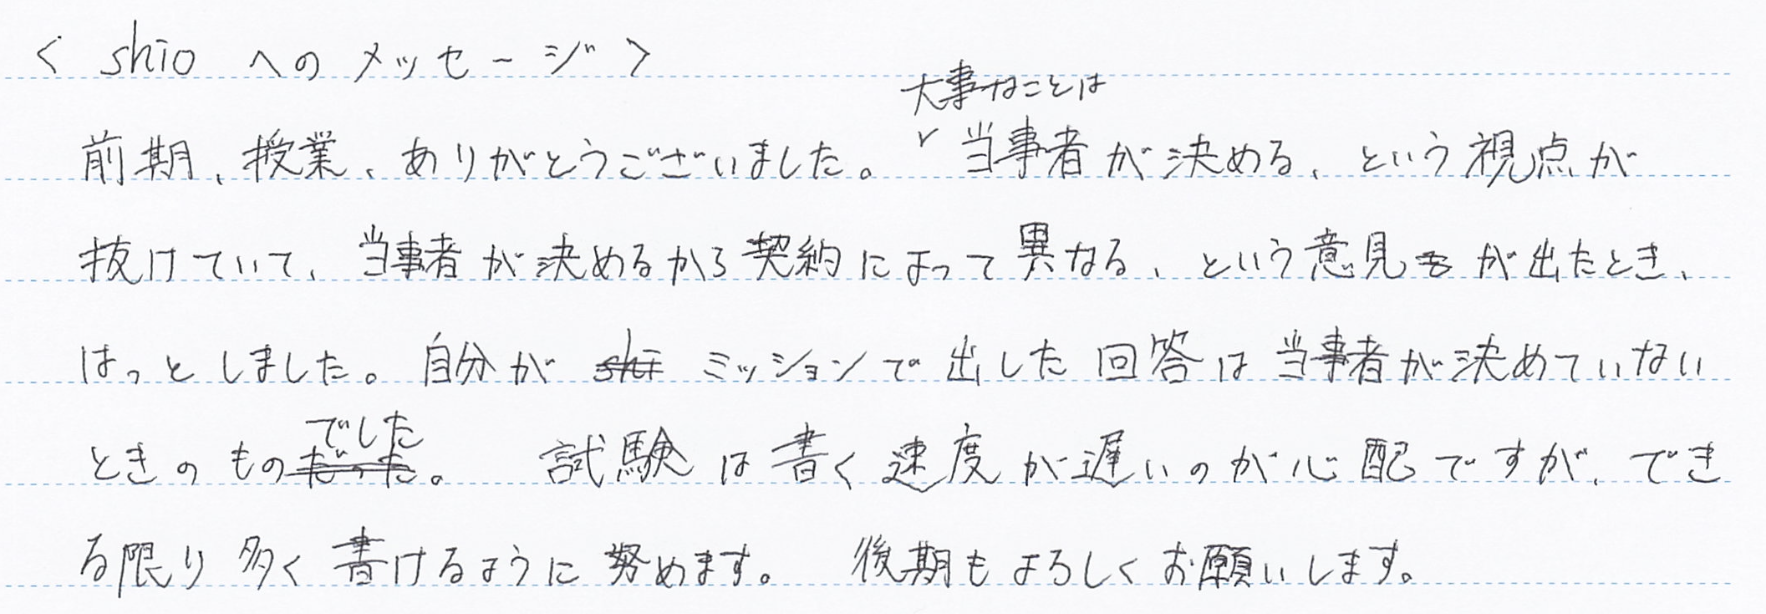 < shio へのメッセージ >
大事なことは
前期、授業、ありがとうございました。 ✓ 当事者が決める、という視点が
抜けていて、当事者が決めるから契約によって異なる、という意見もが出たとき、
はっとしました。自分が shi ミッションで出した回答は当事者が決めていない
でした
ときのものだった。 試験は書く速度が遅いのが心配ですが、でき
る限り多く書けるように努めます。 後期もよろしくお願いします。